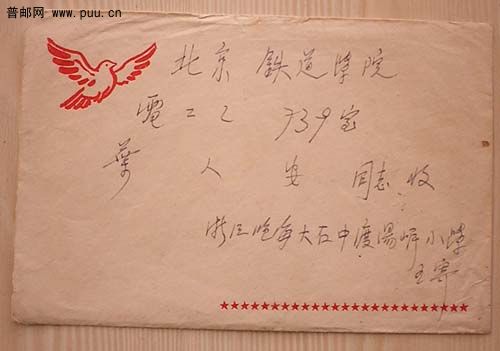 普邮网 www.puu.cn
北京 铁道學院
電二乙 739室
葉 人 安 同志 收
浙江临海大石中渡 小學
王寄